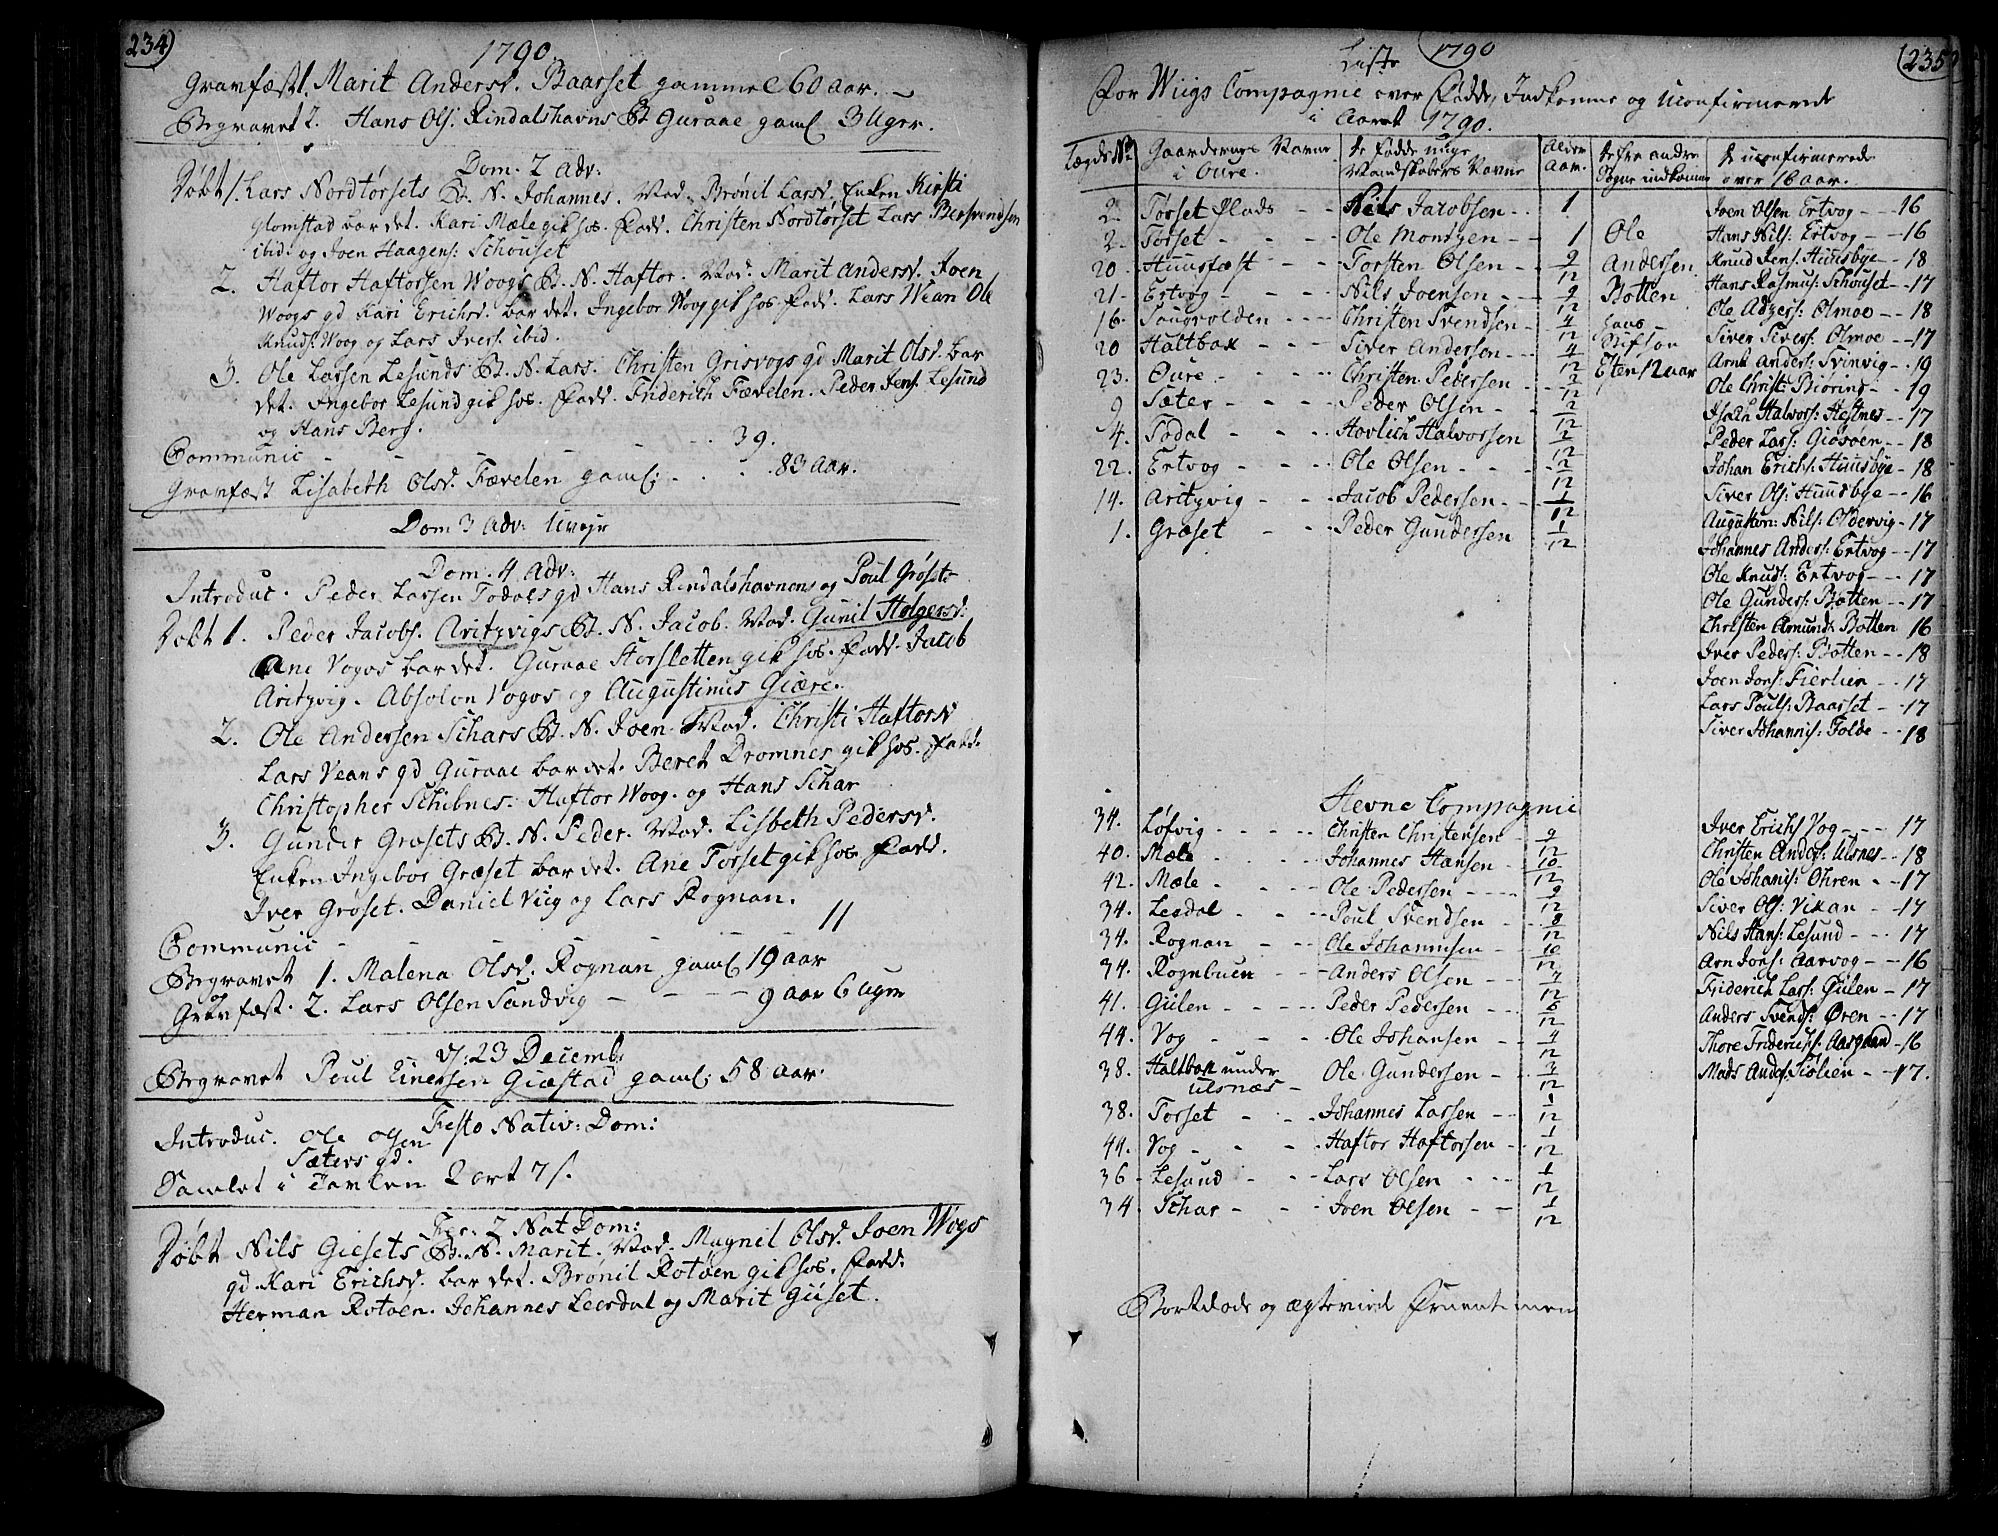 234)
1790.
Gravfæst 1. Marit Andersd. Baarset gammel 60 aar.
Begravet 2. Hans Ols: Rindalshavns B. Guraae gaml 3 Uger.
Dom. 2 Adv:
Døbt 1. Lars Nordtørsets B. N. Johannes. Mod. Brønil Larsd, Enken Kirsti
Glomstad bar det. Kari Mæle gik hos. Fadd. Christen Nordtørset Lars Bersvendsen
ibid: og Joen Haagens: Schouset
2. Haftor Haftorsen Woogs B. N. Haftor. Mod. Marit Andersd. Joen
Woogs gd Kari Erichsd. bar det. Ingebor Woog gik hos. Fadd. Lars Wean Ole
Knuds: Woog og Lars Ivers: ibid.
3. Ole Larsen Lesunds B. N. Lars. Christen Grisvogs gd Marit Olsd. bar
det. Ingebor Lesund gik hos. Fadd. Friderich Fævelen. Peder Jens. Lesund
og Hans Berg.
Communic - - - 39.
Gravfæst Lisabeth Olsd. Fævelen gaml: - . . 83 Aar.
Dom 3 Adv: Uvejr
Dom. 4 Adv:
Introduc. Peder Larsen Todals gd Hans Rindalshavnens og Poul Grøsets
Døbt 1. Peder Jacobs. Aritzvigs B. N. Jacob. Mod. Gunil Holgersd.
Ane Vogos bar det. Guraae Storsletten gik hos. Fadd. Jacob
Aritzvig. Absolon Vogos og Augustinus Giære.
2. Ole Andersen Schars B. N. Joen. Mod. Christi Haftorsd
Lars Veans gd Guraae bar det. Beret Dromnes gik hos. Fadd.
Christopher Schibnes. Haftor Woog. og Hans Schar
3. Gunder Grøsets B. N. Peder. Mod. Lisbeth Pedersd.
Enken Ingebor Græset bar det. Ane Torset gik hos Fadd.
Iver Grøset. Daniel Viig og Lars Rognan.
Communic - - - - 11
Begravet 1. Malena Olsd. Rognan gaml 19 aar
og Gravfæst. 2. Lars Olsen Sandvig - - - - 9 aar 6 uger
d. 23 Decemb.
Begravet Poul Einersen Giæstad gaml: 58 aar.
Festo Nativ: Dom:
Introduc. Ole Olsen
Sæters gd.
Samlet i Tavlen 2 ort 7 s.
Fer. 2 Nat Dom:
Døbt Nils Giesets B. N. Marit. Mod. Magnil Olsd. Joen Wogs
gd. Kari Erichsd. bar det. Brønil Rotøen gik hos. Fadd.
Herman Rotøen. Johannes Leerdal og Marit Giiset.
(235)
Liste 1790
For Wiigs Compagnie over Fødde, Indkomne og Uconfirmerede
i Aaret 1790.
Lægds No Gaardernes Navne i Oure. De fødde unge Mandskabers Navne Alder Aar. De fra andre Sogne indkomne De uconfirmerede over 16 aar.
2 Tørset Plads - - Nils Jacobsen - - 1 Joen Olsen Ertvog - - 16
2. Torset - - - Ole Monsen - - 1 Ole Hans Nils: Ertvog - - 16
20 Huusfæst - - Torsten Olsen - - 9/12 Andersen Knud Jens: Huusbye - - 18
21. Ertvog - - - Nils Joensen - - 9/12 Botten Hans Rasmus: Schouset - - 17
16. Sougvolden - - - Christen Svendsen - 4/12 Ole Adzers: Olmoe - - 18
20 Haltbak - - - Siver Andersen - - 4/12 Siver Sivers: Olmoe - - 17
23. Oure - - - - Christen Pedersen 12 aar Arnt Anders: Svinvig - 19
9 Sæter - - - Peder Olsen - - 2/12 Ole Christ: Biøring - - 19
4. Todal - - - Hovlich Halvorsen 2/12 Halvors: Hestnes - - 17
22. Ertvog - - - Ole Olsen - - - 2/12 Peder Lars: Giøsøen - - 18
14. Aritzvig - - Jacob Pedersen - - 1/12 Johan Erichs: Huusbye - 18
1. Græset - - Peder Gundersen 1/12 Siver Ols: Huusbye - - 16
Augustin: Nils: Oldervig - 17
Johannes Anders: Ertvog - - 17
Ole Knuds: Ertvog - - 17
Ole Gunders: Botten - - 17
Christen Amunds: Botten 16
Iver Peders: Botten - - 18
Joen Jons: Fierlien - - 17
Lars Pouls: Baarset - - 17
Siver Johannis: Folde - - 18
Hevne Compagnie
34. Løfvig - - - - Christen Christensen - 9/12 Iver Erichs Vog - - - 17
40. Mæle - - - Johannes Hansen - - 10/12 Christen Anders: Ulsnes - - 18
42. Mæle - - - Ole Pedersen - - - 9/12 Ole Johanis: Ohren - - 17
34. Leedal - - - Poul Svendsen - - 8/12 Siver Ols: Vikan - - 17
34. Rognan - - - Ole Johannisen - - 10/12 Nils Hans: Lesund - - - 17
34. Rognbuen - - - Anders Olsen - - 7/12 Arn Jons: Aarvog - - 16
41. Gulen - - - - Peder Pedersen - - 6/12 Friderich Lars: Gulen - 17
44. Vog - - - Ole Johansen - - 4/12 Anders Svends: Øren - - 17
38. Haltbak under Ulsnæs - Ole Gundersen - - 3/12 Thore Friderichs: Aasgaard - 16
38. Torset - - - Johannes Larsen - - 1/12 Mads Anders: Siølien - - 17.
44. Vog - - - Haftor Haftorsen - - 1/12
36 - Lesund - - - Lars Olsen - - - 1/12
34. Schar - - - Joen Olsen - - 1/12